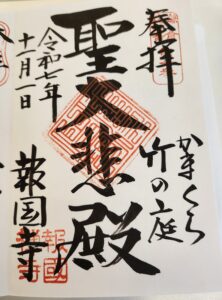 奉拝
かまくら
竹の庭
聖大悲殿
令和七年
十一月一日
報国寺
報國禅寺